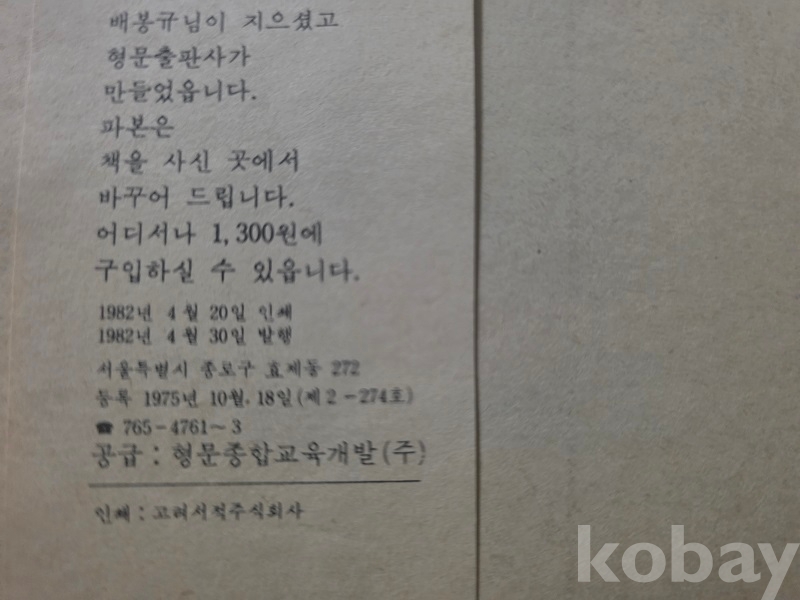 배봉규님이 지으셨고
형문출판사가
만들었읍니다.
파본은
책을 사신 곳에서
바꾸어 드립니다.
어디서나 1,300원에
구입하실 수 있읍니다.
1982년 4월 20일 인쇄
1982년 4월 30일 발행
서울특별시 종로구 효제동 272
등록 1975년 10월. 18일(제2-274호)
☎ 765-4761~3
공급 : 형문종합교육개발(주)
인쇄 : 고려서적주식회사
kobay